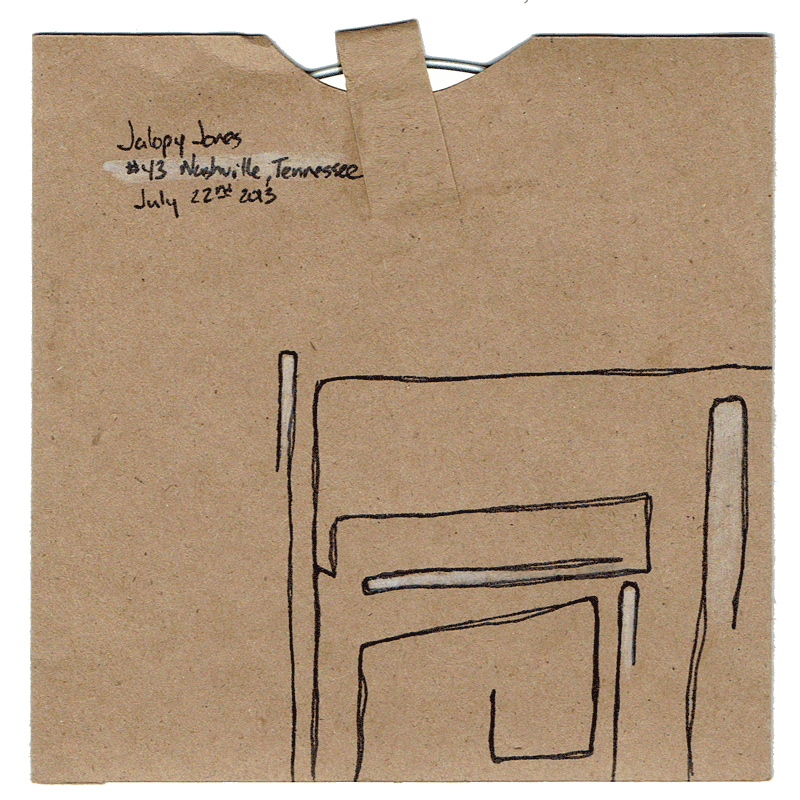 Jalopy Jones
#43 Nashville, Tennessee
July 22nd 2013